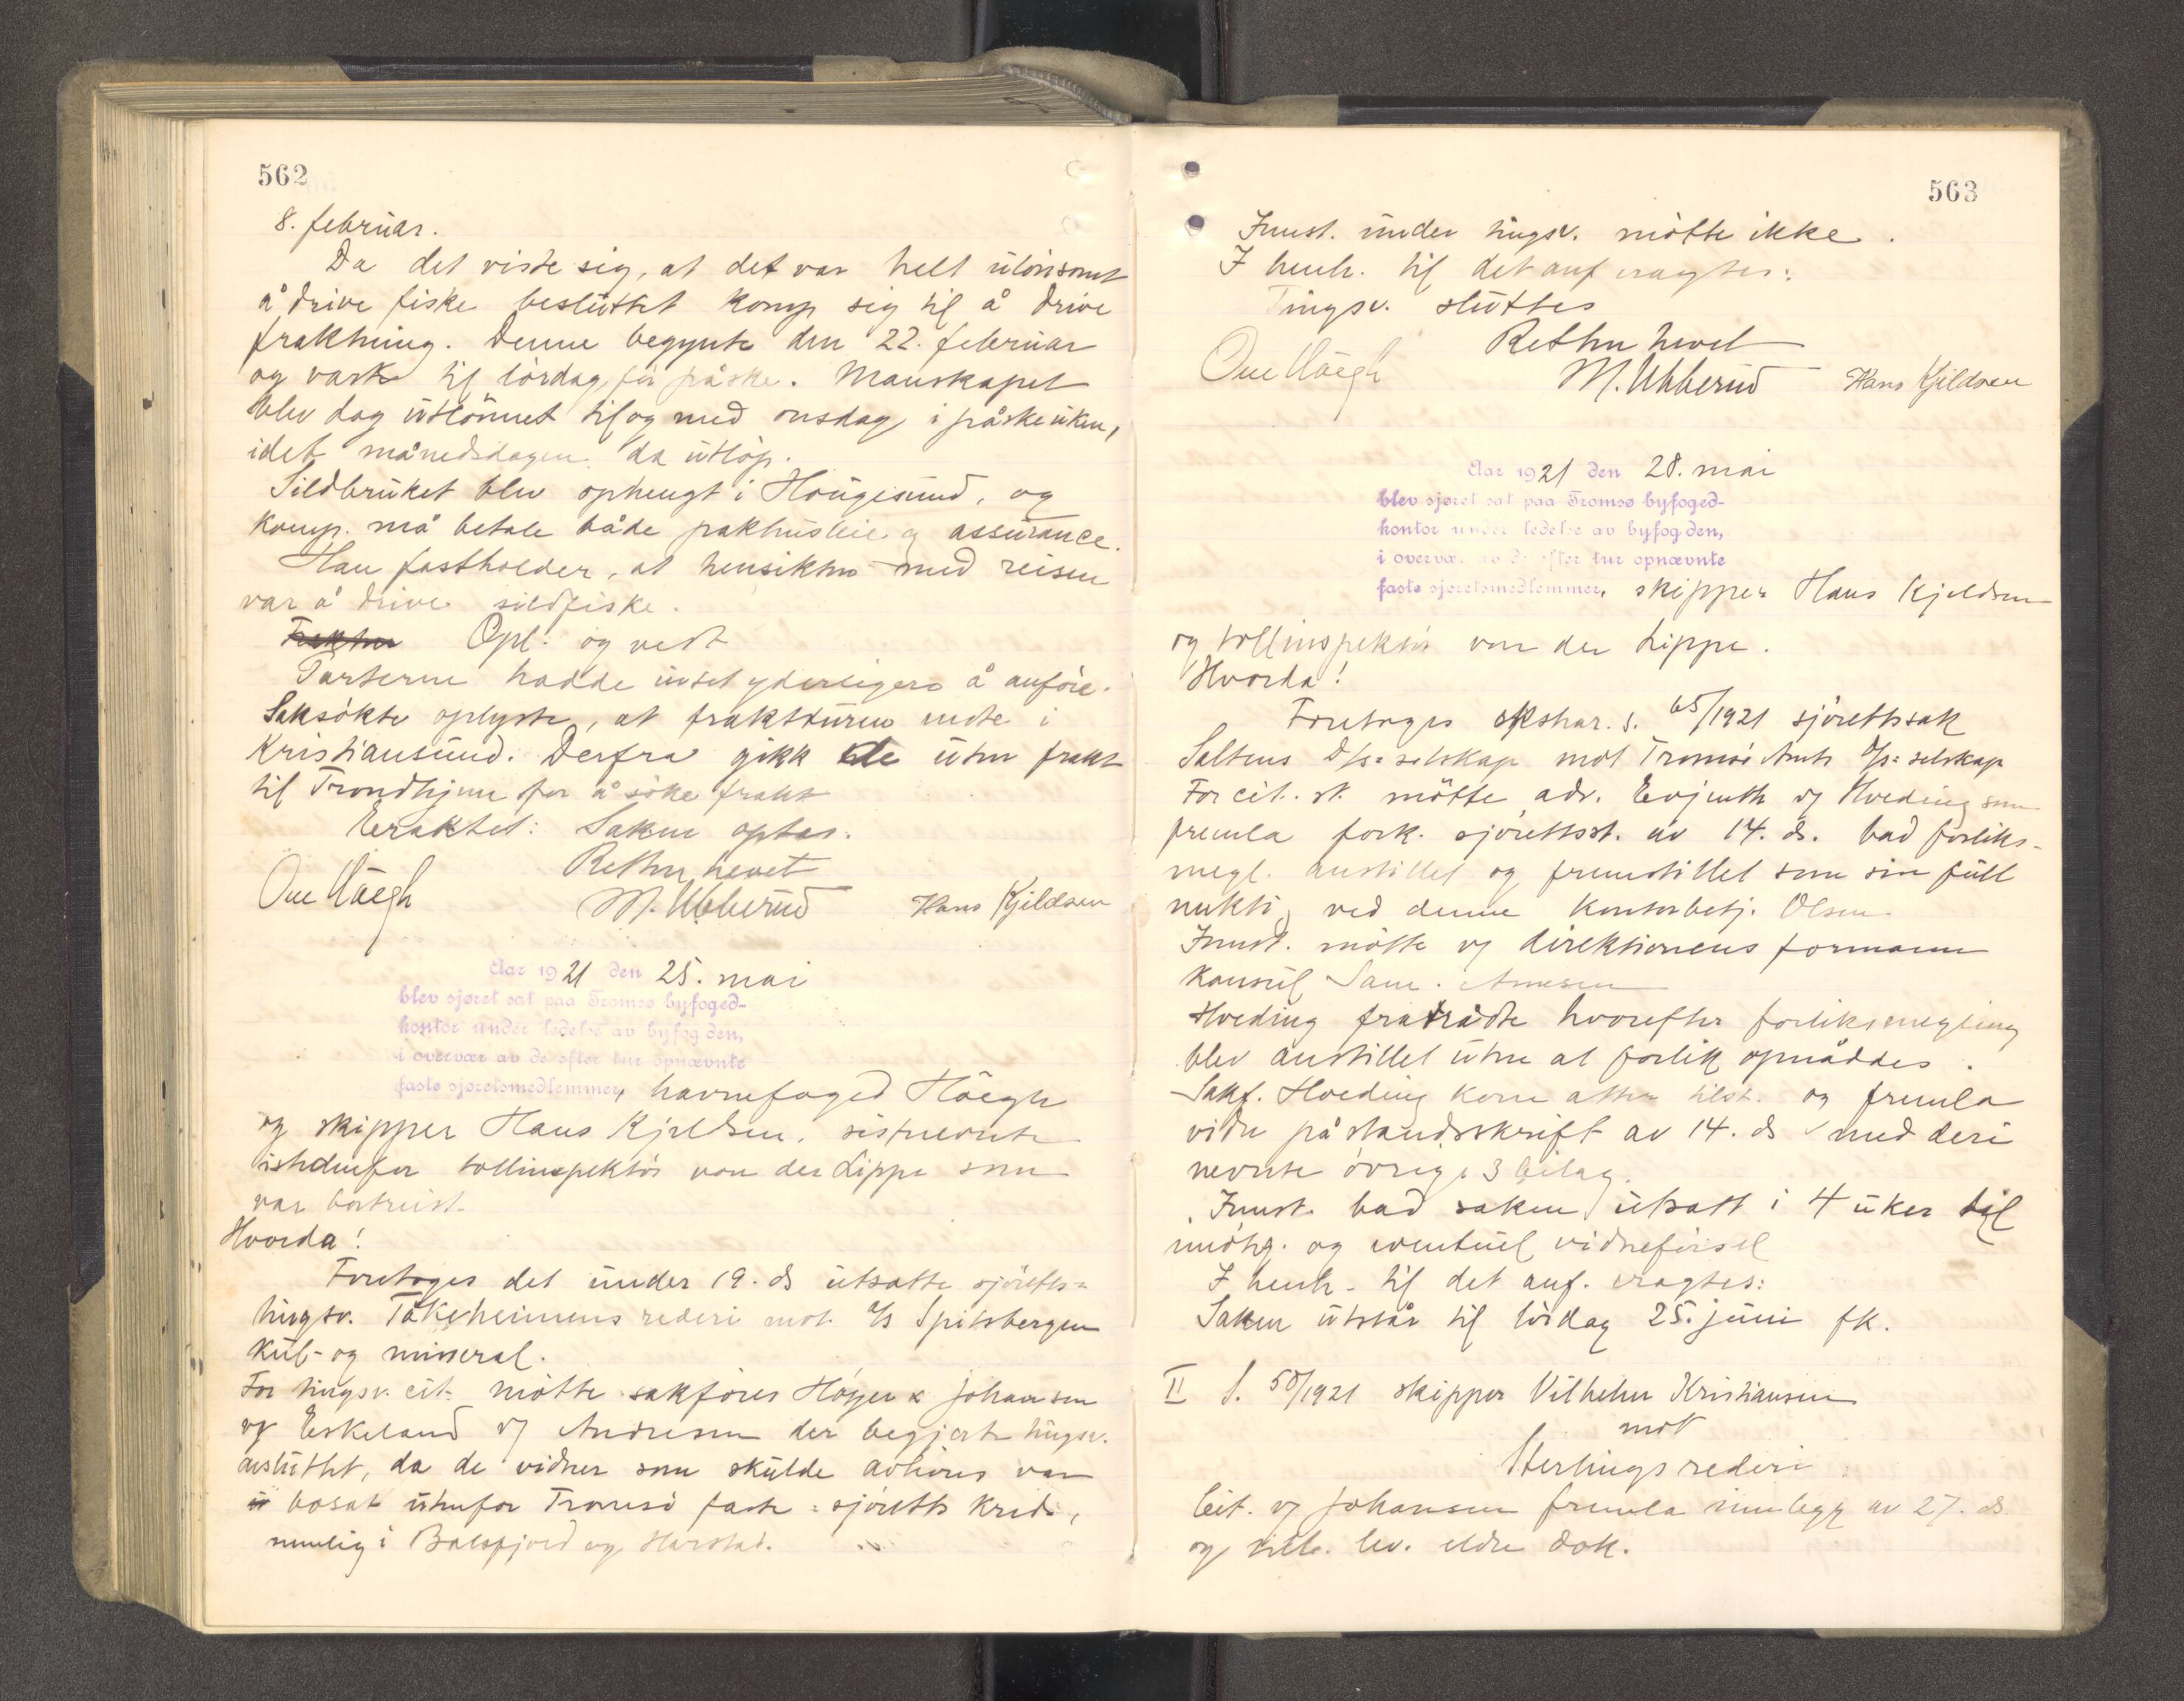 562
8. februar.
Da det viste sig, at det var helt ulönsomt
å drive fiske besluttet komp sig til å drive
fraktning. Denne begynte den 22. februar
og varte til lördag för påske. Manskapet
blev dog utlönnet til og med onsdag i påskeuken,
idet månedsdagen da utlöp.
Sildbruket blev ophengt i Hougesund, og
komp. må betale både pakhusleie og assurance.
Han fastholder, at hensikten med reisen
var å drive sildfiske.
Opl. og vedt
Parterne hadde intet yderligere å anföre.
Saksökte oplyste, at fraktturen endte i
Kristiansund. Derfra gikk de uten frakt
til Trondhjem for å söke frakt
Eraktet: Saken optas.
Retten hevet
Ove Höegh M. Ubberud Hans Kjeldsen
Aar 1921 den 25. mai
blev sjøret sat paa Tromsø byfoged-
kontor under ledelse av byfogden,
i overvær av de efter tur opnævnte
faste sjøretsmedlemmer, havnefoged Höegh
og skipper Hans Kjeldsen, sistnevnte
istedenfor tollinspektör von der Lippe som
var bortreist.
Hvorda!
Foretoges det under 19. ds utsatte sjöretts-
tingsv. Tåkeheimens rederi mot A/s Spitsbergen
kul- og mineral.
For tingsv. cit. mötte sakförer Höyer & Johansen
og Eskeland v/ Andresen der begjerte tingsv.
avsluttet, da de vidner som skulde avhöres var
bosat utenfor Tromsö faste sjöretts kreds,
nemlig i Balsfjord og Harstad.
563
Innst. under tingsv. mötte ikke.
I henh. til det anf eragtes:
Tingsv. sluttes
Retten hevet
Ove Höegh M. Ubberud Hans Kjeldsen
Aar 1921 den 28. mai
blev sjøret sat paa Tromsø byfoged-
kontor under ledelse av byfogden,
i overvær av de efter tur opnævnte
faste sjøretsmedlemmer, skipper Hans Kjeldsen
og tollinspektör von der Lippe.
Hvorda!
Foretoges s. 65/1921 sjörettssak
Saltens D/s= selskap mot Tromsö Amts D/s= selskap
For cit. st. mötte adv. Evjenth v/ Hveding som
fremla fork. sjörettsst. av 14. ds. bad forliks-
megl. anstillet og fremstillet som sin full
mektig ved denne kontorbetj. Olsen
Innst. mötte v/ direktionens formann
Konsul Sam. Arnesen
Hveding fratrådte hvorefter forliksmegling
blev anstillet uten at forlik opnåddes.
Sakf. Hveding kom atter tilst. og fremla
videre påstandsskrift av 14. ds med deri
nevnte övrige 3 bilag.
Innst. bad saken utsatt i 4 uker til
imötg. og eventuel vidneförsel
I henh. til det anf. eragtes:
Saken utstår til lördag 25. juni fk.
II S. 58/1921 skipper Vilhelm Kristiansen
mot
Sterlings rederi
Cit. v/ Johansen fremla innlegg av 27. ds
og lev. eldre dok.